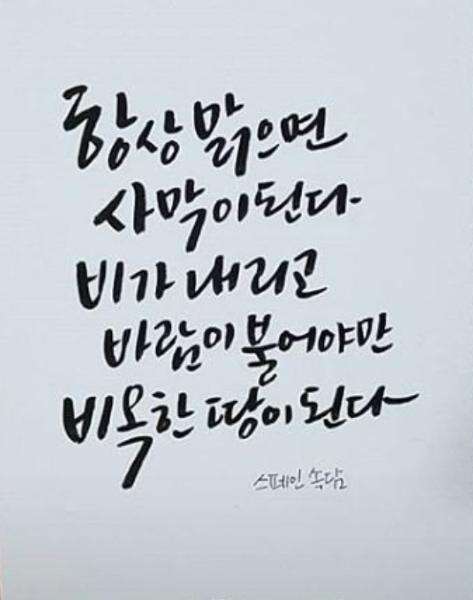 항상 맑으면
사막이 된다.
비가 내리고
바람이 불어야만
비옥한 땅이 된다
스페인 속담